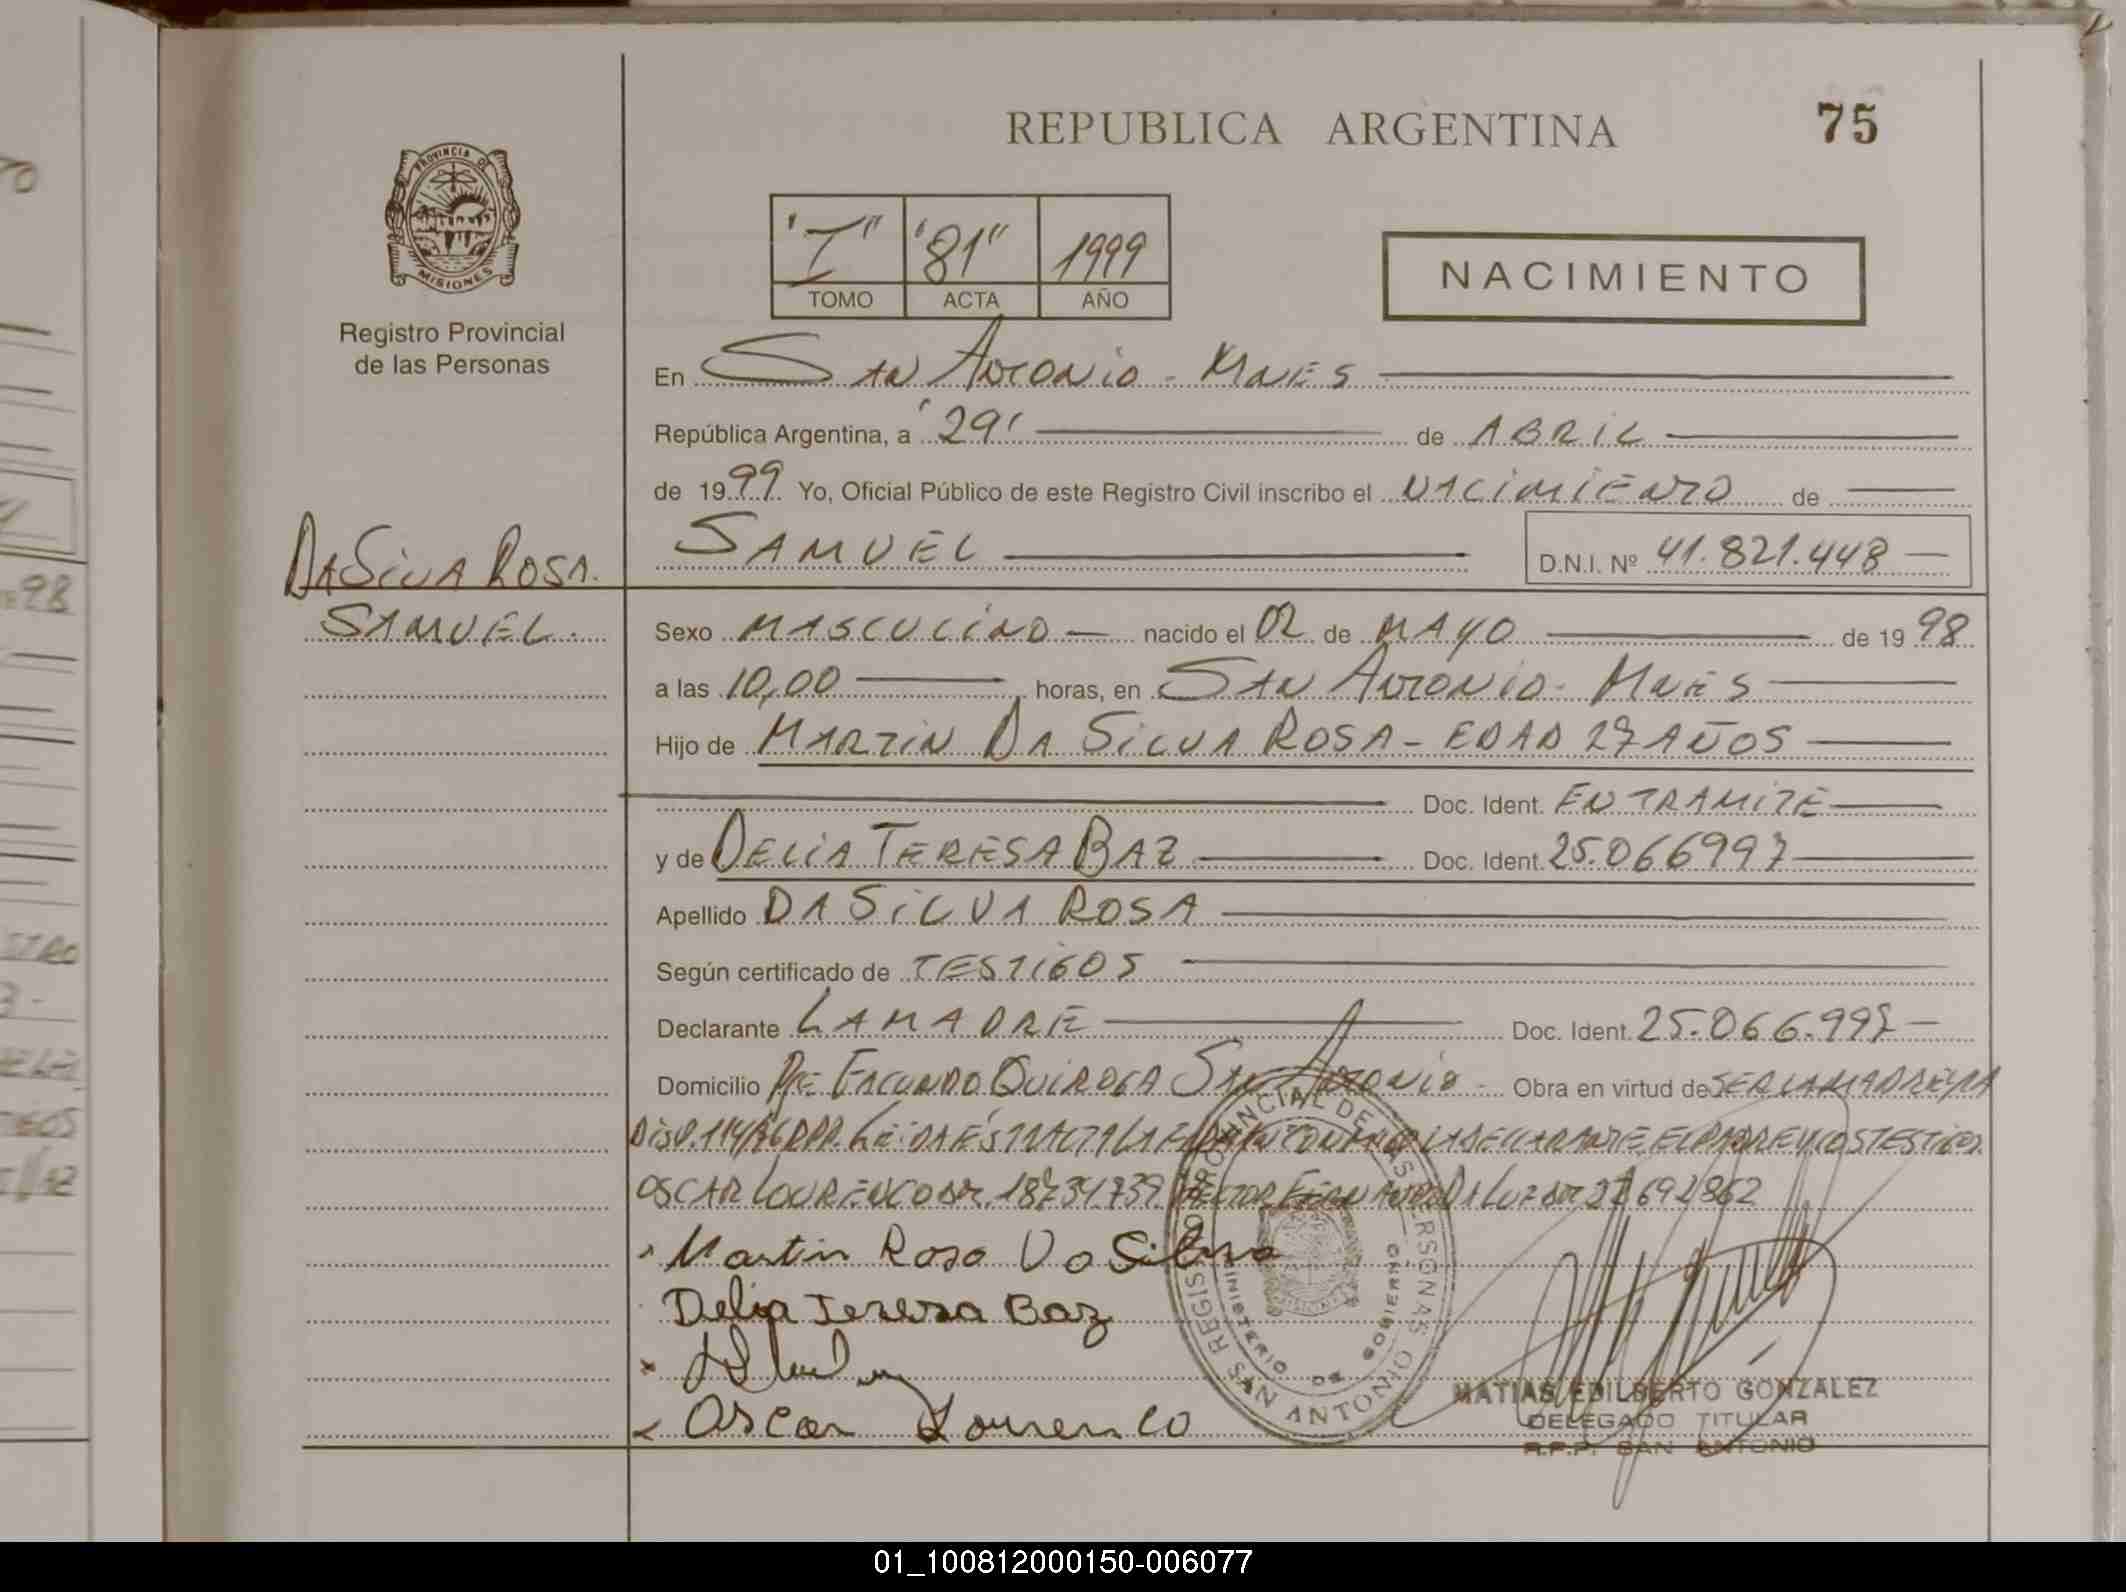 REPUBLICA ARGENTINA
75
PROVINCIA DE
MISIONES
Registro Provincial
de las Personas
"I" "81" 1999
TOMO ACTA AÑO
NACIMIENTO
En San Antonio - Mnes
República Argentina, a "29" de ABRIL
de 1999 Yo, Oficial Público de este Registro Civil inscribo el NACIMIENTO de
SAMUEL
D.N.I. Nº 41.821.448
Da Silva Rosa.
SAMUEL.
Sexo MASCULINO nacido el 02 de MAYO de 1998
a las 10,00 horas, en San Antonio - Mnes
Hijo de MARTIN DA SILVA ROSA - EDAD 27 AÑOS
Doc. Ident. EN TRAMITE
y de DELIA TERESA BAZ Doc. Ident. 25.066997
Apellido DA SILVA ROSA
Según certificado de TESTIGOS
Declarante LA MADRE Doc. Ident. 25.066.997
Domicilio Pje Facundo Quiroga San Antonio - Obra en virtud de SER LA MADRE Y LA
LEIDA ESTA ACTA LA FIRMAN CONMIGO LA DECLARANTE EL PADRE Y LOS TESTIGOS
OSCAR LOURENCO 18734739 HECTOR FERNANDO DA LUZ
Martin Rosa Da Silva
Delia Teresa Baz
Oscar Lourenco
REGISTRO PROVINCIAL DE LAS PERSONAS
MINISTERIO DE GOBIERNO
SAN ANTONIO
MATIAS EDILBERTO GONZALEZ
DELEGADO TITULAR
R.P.P. SAN ANTONIO
01_100812000150-006077